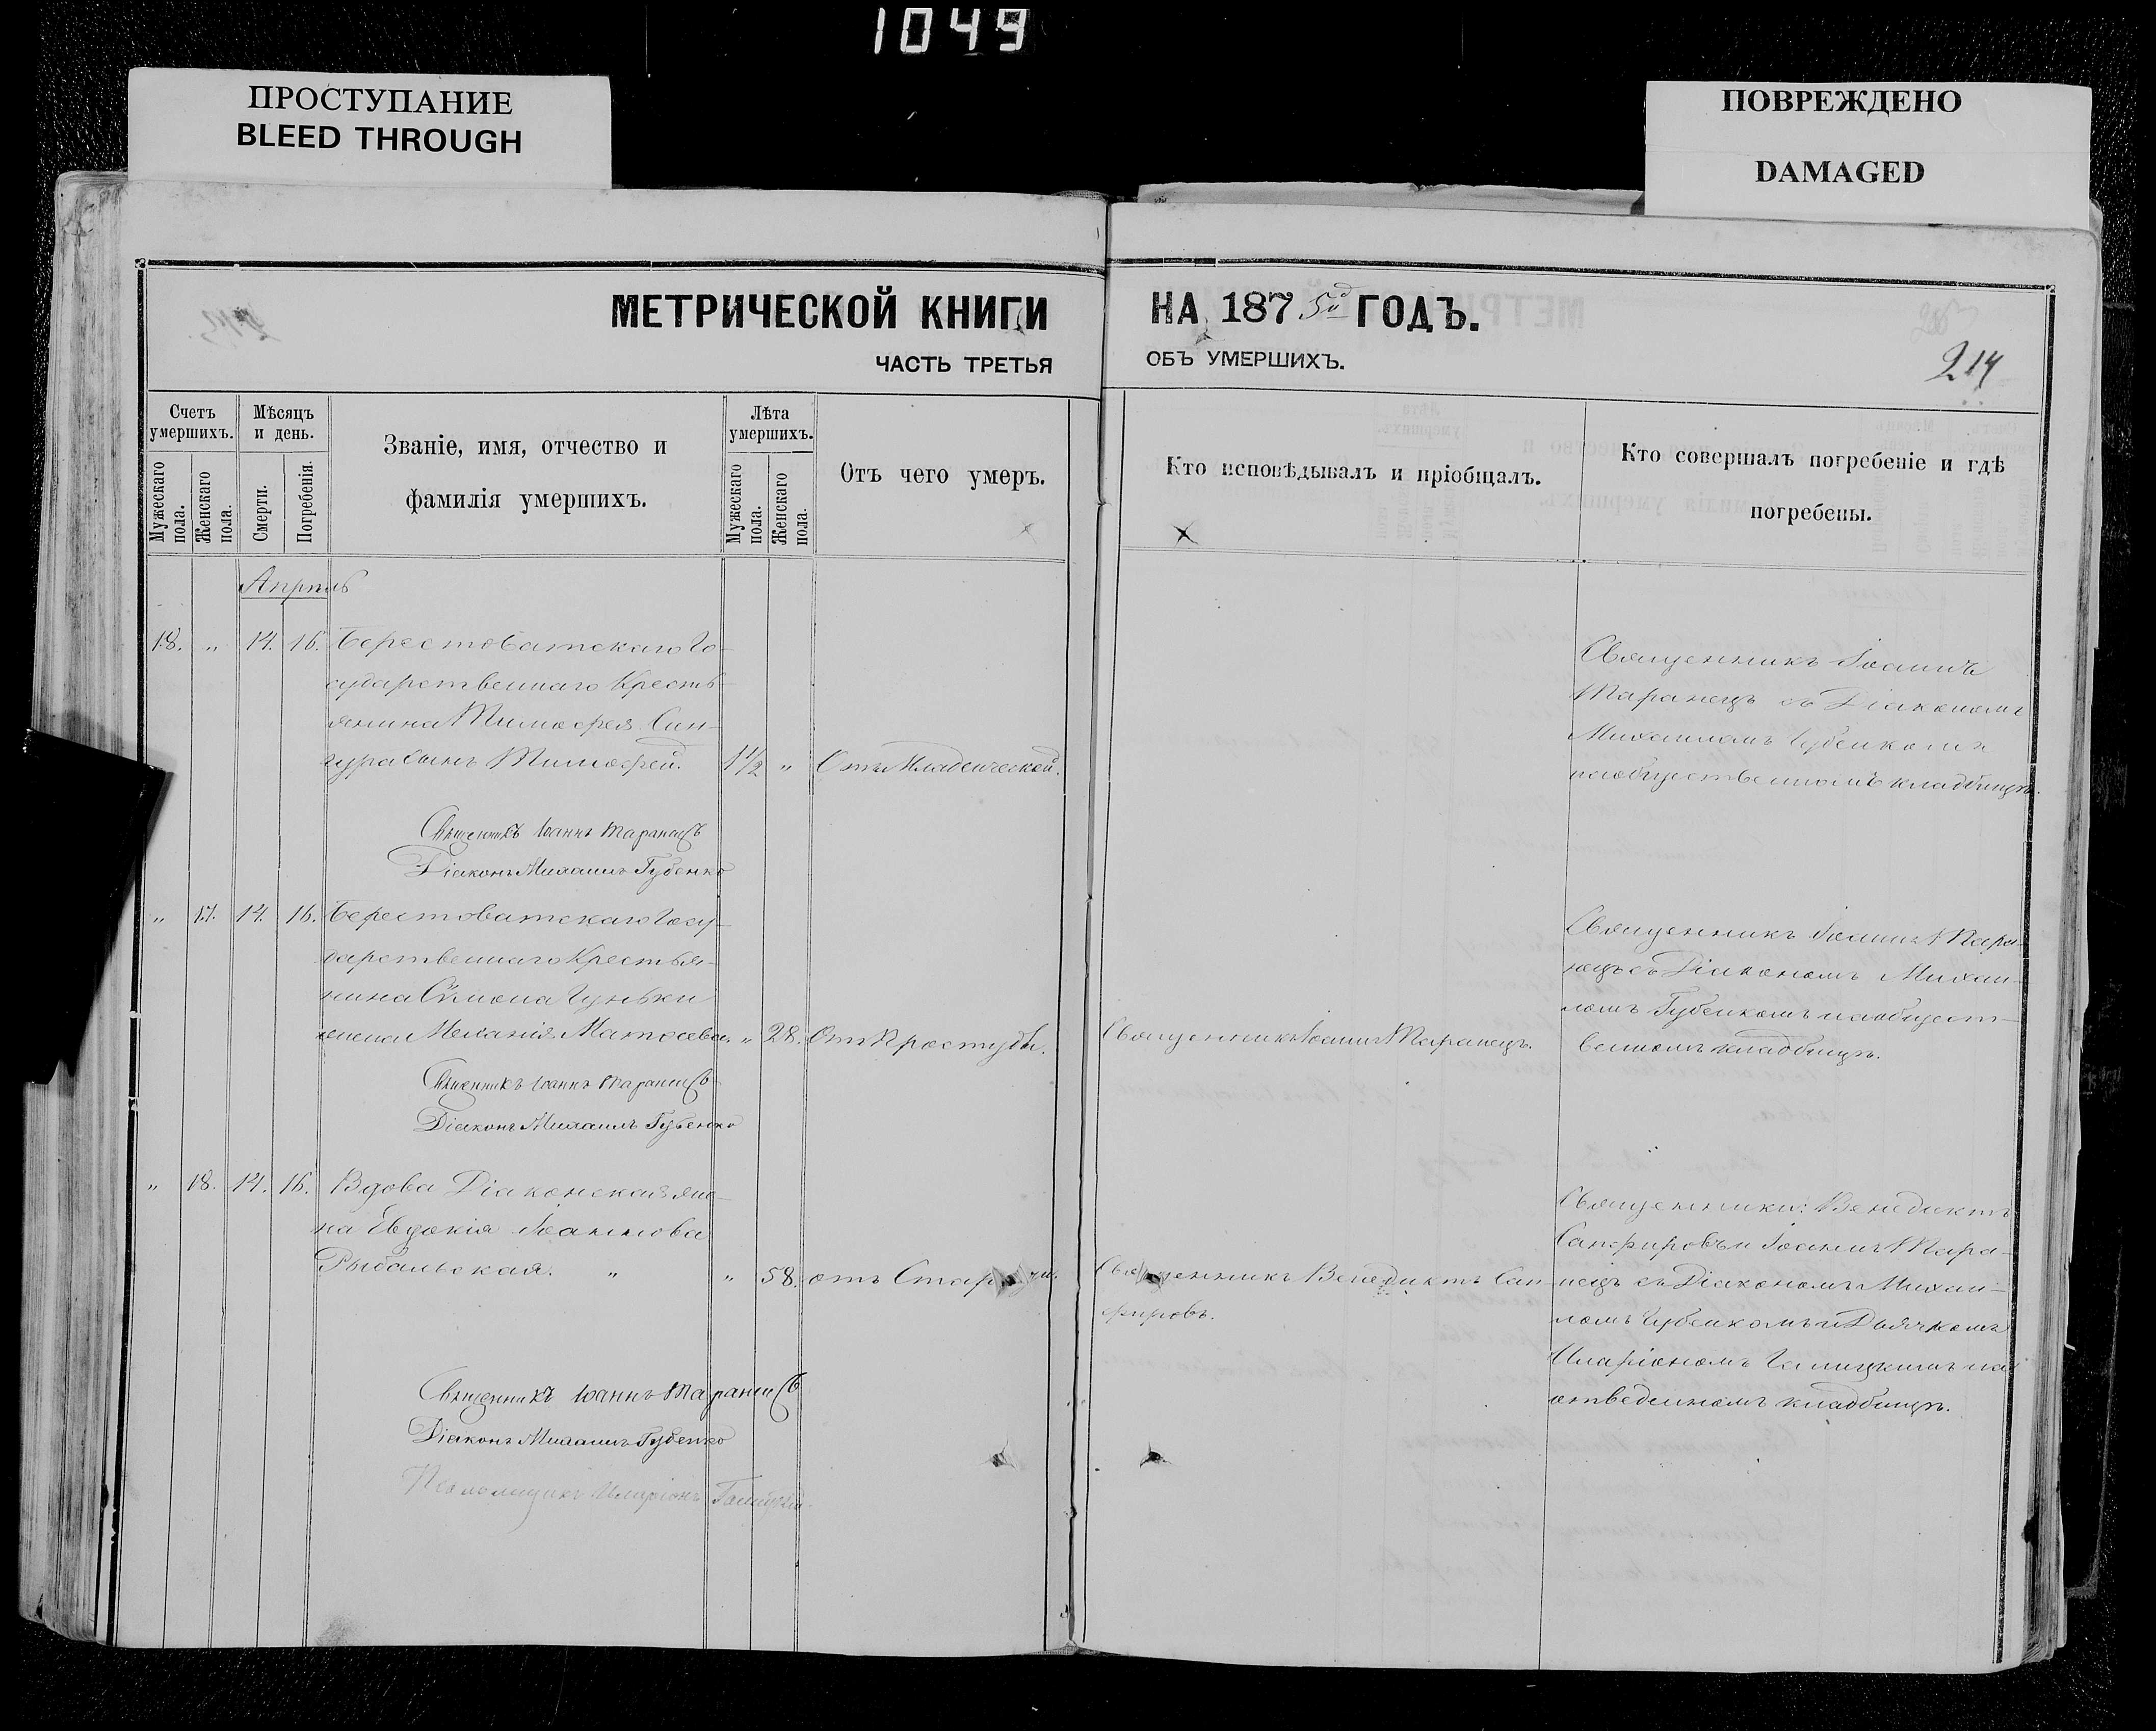 1049
ПРОСТУПАНИЕ
BLEED THROUGH
ПОВРЕЖДЕНО
DAMAGED
МЕТРИЧЕСКОЙ КНИГИ НА 1875й ГОДЪ.
ЧАСТЬ ТРЕТЬЯ ОБЪ УМЕРШИХЪ.
214
Счетъ умершихъ.
Мужескаго пола.
Женскаго пола.
Мѣсяцъ и день.
Смерти.
Погребенія.
Званіе, имя, отчество и
фамилія умершихъ.
Лѣта умершихъ.
Мужескаго пола.
Женскаго пола.
Отъ чего умеръ.
Кто исповѣдывалъ и пріобщалъ.
Кто совершалъ погребеніе и гдѣ
погребены.
Апрѣль
18. " 14. 16. Берестоватскаго Го-
сударственнаго Кресть-
янина Тимоѳея Син-
гура сынъ Тимоѳей. 1 1/2 " Отъ Младенческой.
Священникъ Іоаннъ
Таранецъ съ Діакономъ
Михаиломъ Губенкомъ
наобщественномъ кладбищѣ.
Священникъ Іоаннъ Таранецъ
Діаконъ Михаилъ Губенко
" 17. 14. 16. Берестоватскаго Госу-
дарственнаго Крестья-
нина Сѵмона Гуньки
жена Меланія Матѳеева " 28. Отъ Простуды.
Священникъ Іоаннъ Таранецъ.
Священникъ Іоаннъ Тара-
нецъ съ Діакономъ Михаи-
ломъ Губенкомъ наобщест-
венномъ кладбищѣ.
Священникъ Іоаннъ Таранецъ
Діаконъ Михаилъ Губенко
" 18. 14. 16. Вдова Діаконская же-
на Евдокія Іоаннова
Рыбальская. " " 58. отъ
Священникъ Венедиктъ Сап-
фировъ.
Священники: Венедиктъ
Сапфировъ и Іоаннъ Тара-
нецъ съ Діакономъ Михаи-
ломъ Губенкомъ и Дьячкомъ
Иларіономъ Галицкимъ на
отведенномъ кладбищѣ.
Священникъ Іоаннъ Таранецъ
Діаконъ Михаилъ Губенко
Псаломщикъ Иларіонъ Галицкій.